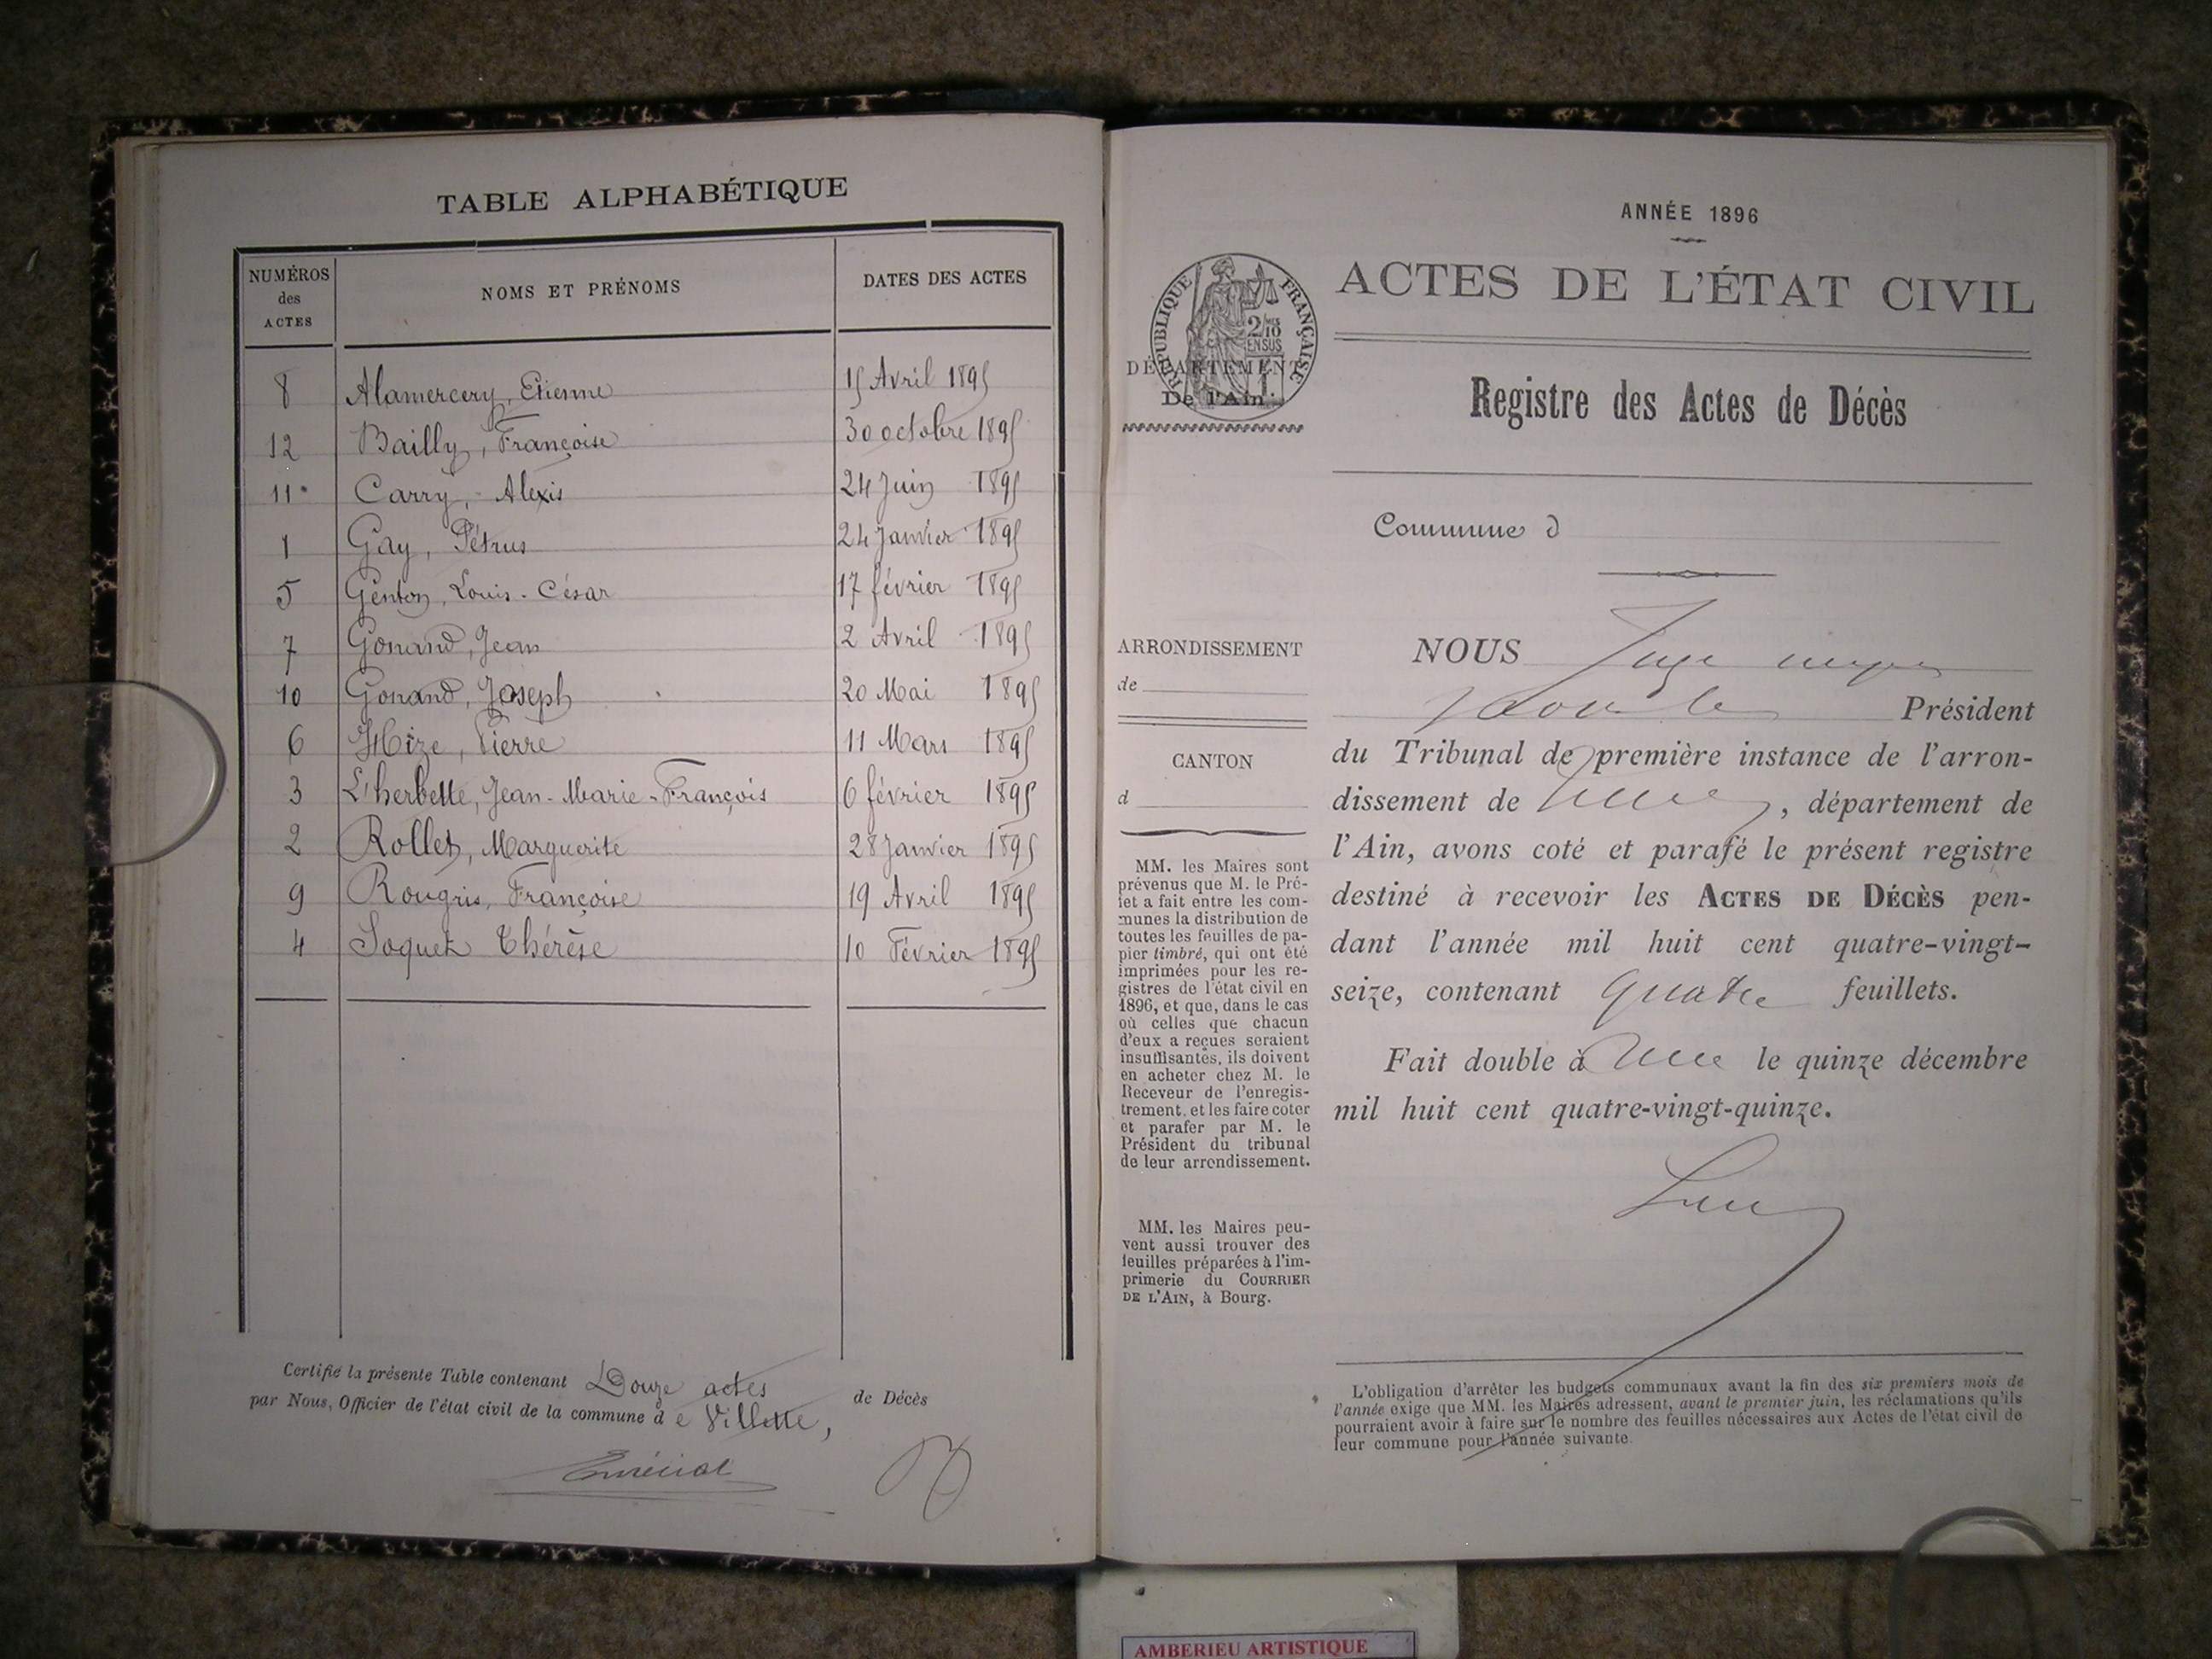 TABLE ALPHABÉTIQUE
NUMÉROS des ACTES NOMS ET PRÉNOMS DATES DES ACTES
8 Alamercery, Etienne 15 Avril 1895
12 Bailly, Françoise 30 octobre 1895
11 Carry, Alexis 24 Juin 1895
1 Gay, Pétrus 24 Janvier 1895
5 Genton, Louis-César 17 février 1895
7 Gonand, Jean 2 Avril 1895
10 Gonand, Joseph 20 Mai 1895
6 Pierre 11 Mars 1895
3 L'herbette, Jean-Marie-François 6 février 1895
2 Rollet, Marguerite 28 Janvier 1895
9 Rougris, Françoise 19 Avril 1895
4 Soquet Thérèse 10 Février 1895
Certifié la présente Table contenant Douze actes de Décès
par Nous, Officier de l'état civil de la commune d e Villette,
ANNÉE 1896
ACTES DE L'ÉTAT CIVIL
RÉPUBLIQUE FRANÇAISE
2/10 MES
EN SUS
DÉPARTEMENT
De l'Ain
Registre des Actes de Décès
Commune d
ARRONDISSEMENT
de
CANTON
d
MM. les Maires sont
prévenus que M. le Pré-
fet a fait entre les com-
munes la distribution de
toutes les feuilles de pa-
pier timbré, qui ont été
imprimées pour les re-
gistres de l'état civil en
1896, et que, dans le cas
où celles que chacun
d'eux a reçues seraient
insuffisantes, ils doivent
en acheter chez M. le
Receveur de l'enregis-
trement, et les faire coter
et parafer par M. le
Président du tribunal
de leur arrondissement.
MM. les Maires peu-
vent aussi trouver des
feuilles préparées à l'im-
primerie du COURRIER
DE L'AIN, à Bourg.
NOUS Juge
Président
du Tribunal de première instance de l'arron-
dissement de , département de
l'Ain, avons coté et parafé le présent registre
destiné à recevoir les ACTES DE DÉCÈS pen-
dant l'année mil huit cent quatre-vingt-
seize, contenant quatre feuillets.
Fait double à le quinze décembre
mil huit cent quatre-vingt-quinze.
L'obligation d'arrêter les budgets communaux avant la fin des six premiers mois de
l'année exige que MM. les Maires adressent, avant le premier juin, les réclamations qu'ils
pourraient avoir à faire sur le nombre des feuilles nécessaires aux Actes de l'état civil de
leur commune pour l'année suivante.
AMBERIEU ARTISTIQUE